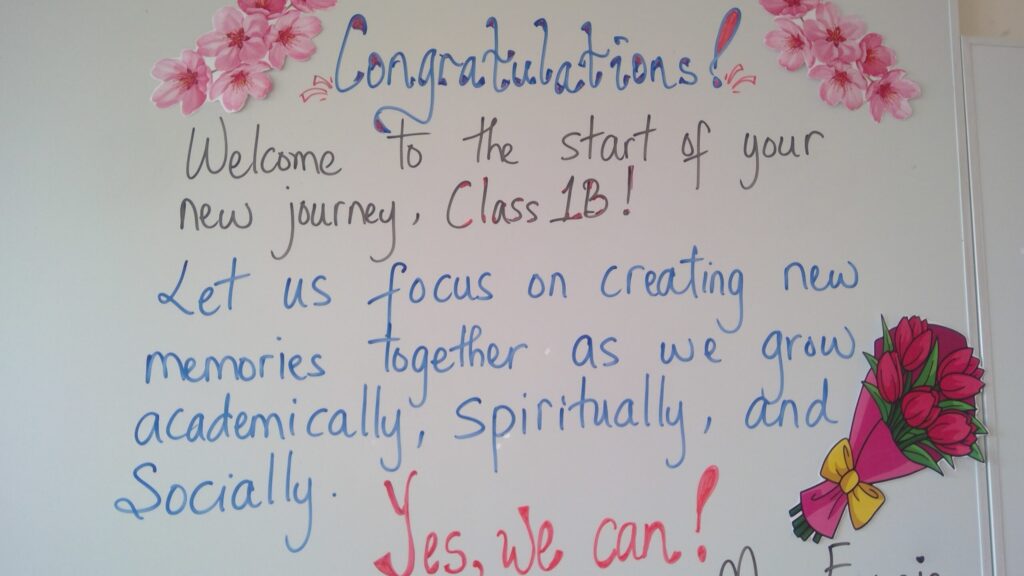 Congratulations!
Welcome to the start of your
new journey, Class 1B!
Let us focus on creating new
memories together as we grow
academically, spiritually, and
Socially.
Yes, we can!